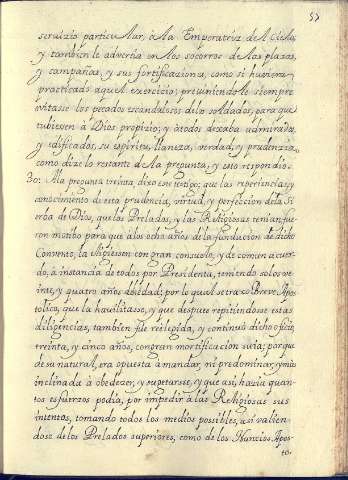 57
servizio particular, â la Emperatriz del Cielo,
y tambien le advertia en los socorros de las plazas,
y campañas, y sus fortificaziones, como si huviera
practicado aquel exercicio; previniendole siempre
evitasse los pecados escandalosos de los soldados, para que
tubiessen â Dios propizio; y â todos dexaba admirados,
y edificados, su espiritu, llaneza, verdad, y prudenzia,
como dize lo restante de la pregunta, y esto respondiô.
30. A la pregunta treinta, dixo este testigo; que las experienzias, y
conocimiento de esta prudencia, virtud, y perfeccion de la Si
erba de Dios, que los Prelados, y las Religiosas tenian fue
ron motibo para que â los ocho años de la fundacion de dicho
Convento, la eligiessen con gran consuelo, y de comun acuer
do, â instancia de todos por Presidenta, teniendo solos ve
inte, y quatro años de edad; por lo qual se traxo Breve Apos
tolico, que la havilitasse, y que despues repitiendose estas
diligencias, tambien fue reelegida, y continuô dicho oficio
treinta, y cinco años, con gran mortificazion suia; porque
de su natural, era opuesta a mandar, ni predominar, y mui
inclinada â obedezer, y sugetarsse, y que assi, hazia quan
tos esfuerzos podia, por impedir â las Religiosas sus
intentos, tomando todos los medios possibles, assi valien
dose de los Prelados superiores, como de los Nuncios Apos
to-